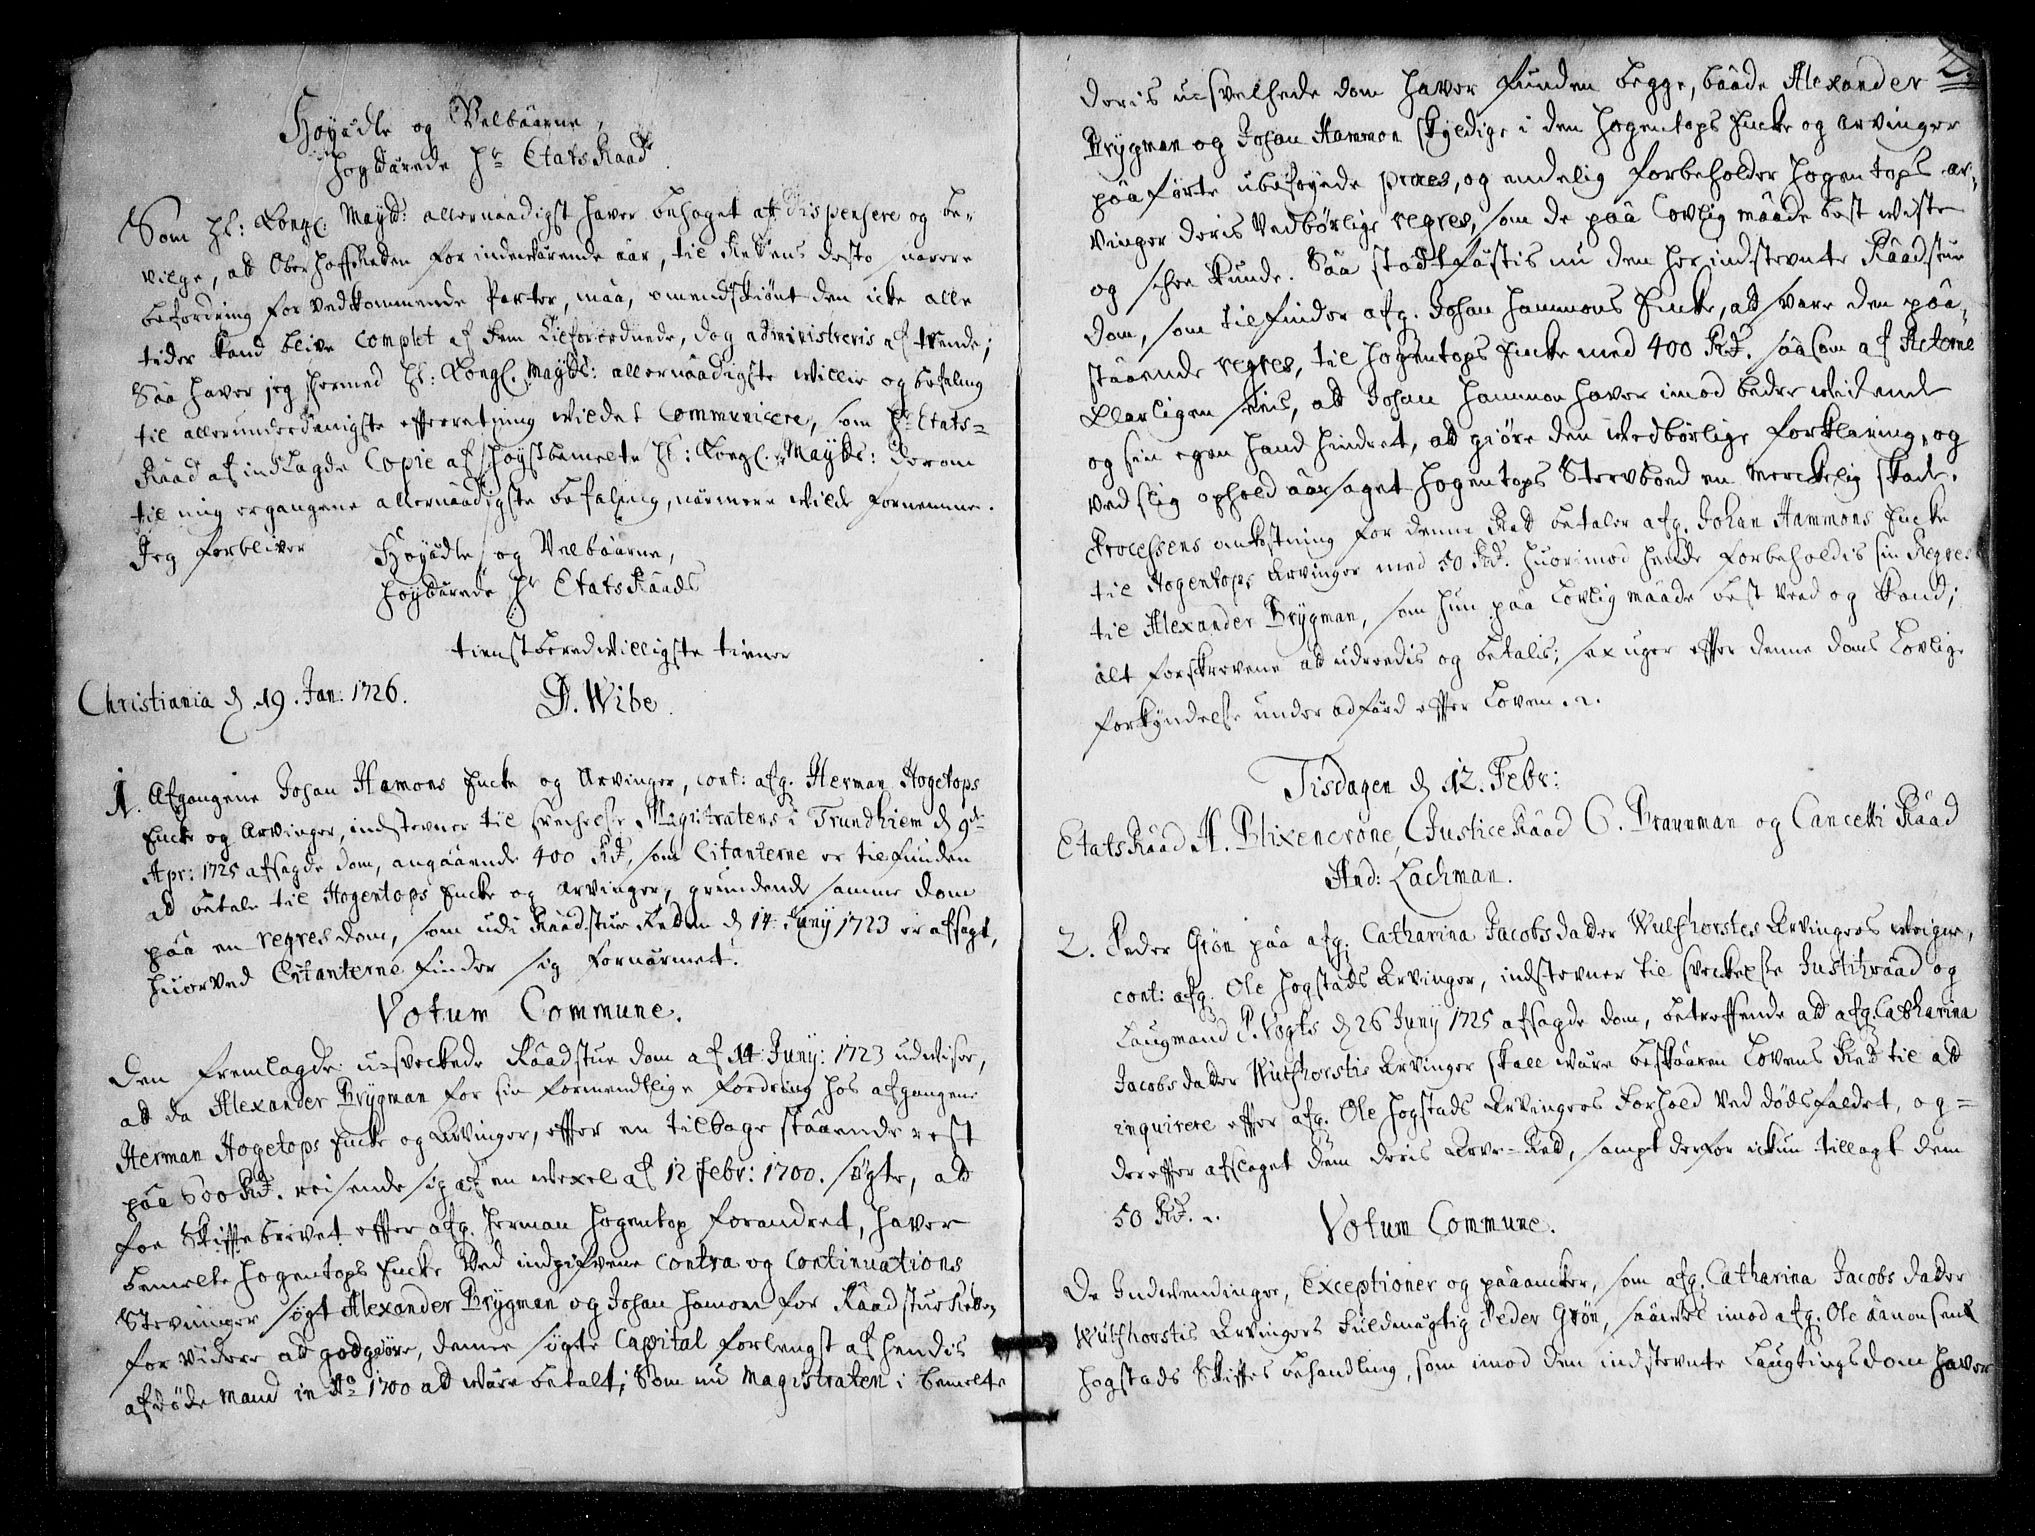 Høyädle og Velbäarne,
Høybärede Hr EtatsRaad.
Som Hs: Kongl. Mayts: allernaadigst haver behaget at dispensere og be-
vilge, at OberhoffRetten for indeværende aar, til Rettens desto snarere
befordring for vedkommende Parter, maa, omendskiønt den icke alle
tider kand blive complet af dem tilforordnede, dog administreris af trende;
Saa haver jeg hermed Hs: Kongl. Mayts: allernaadigste Willie og befaling
til allerunderdanigste efterretning wildet communicere, som Hr Etats-
Raad af indlagde Copie af høystbemelte Hs: Kongl. Mayts: derom
til mig ergangene allernaadigste befaling, närmere wilde fornemme.
Jeg forbliver
Høyädle og Velbäarne,
Høybärede Hr EtatsRaads
tienstberedwilligste tiener
Christiania d. 19. Jan: 1726.
D. Wibe.
1. Afgangene Johan Hamons Encke og Arvinger, cont: afg. Herman Hogetops
Encke og Arvinger, indstevner til svechelse Magistratens i Trundhiem d 9de
Apr: 1725 afsagde dom, angaaende 400 Rd, som Citanterne er tilfunden
at betale til Hogentops Encke og Arvinger, grundende samme dom
paa en regres dom, som udi Raadstue Retten d 14 Juny 1723 er afsagt,
huorved Citanterne finder sig fornärmet.
Votum Commune.
Den fremlagde u-sveckede Raadstue dom af 14 Juny: 1723 udwiser,
at da Alexander Brygman for sin formendtlige fordring hos afgangene
Herman Hogetops Encke og Arvinger, effter en tilbage staaende rest
paa 600 Rd. reisende sig af en Wexel af 12 Febr: 1700. søgte, at
faa Skifftebrevet effter afg. Herman Hogentop forandret, haver
bemelte Hogentops Encke ved indgifvene contra og continuations
Stevninger søgt Alexander Brygman og Johan Hamon for Raadstue Retten,
for videre at godgiøre, denne søgte Capital forlengst af hendis
afdøde Mand in Ao 1700 at wäre betalt; Som nu Magistraten i bemelte
2.
deris u-svechede dom haver funden begge, baade Alexander
Brygman og Johan Hammon skyldige i den Hogentops Encke og Arvinger
paaførte ubeføyede proces, og endelig forbeholder Hogentops Ar-
vinger deris Vedbørlige regres, som de paa Lovlig maade best wiste
og kunde. Saa stadfästis nu den her indstevnte Raadstue
dom, som tilfinder afg. Johan Hammons Encke, at svare den paa-
staaende regres, til Hogentops Encke med 400 Rd. saasom af Acterne
klarligen sees, at Johan Hammon haver imod bedre Widende
og sin egen Hand hindret, at giøre den Wedbørlige forklaring, og
ved slig ophold aarsaget Hogentops Stervboed en merckelig skade.
Processens omkostning for denne Ret betaler afg. Johan Hammons Encke
til Hogentops Arvinger med 50 Rd. huorimod hende forbeholdis sin Regres
til Alexander Brygman, som hun paa Lovlig maade best veed og kand;
alt forskrevene at udreedis og betalis, sex uger effter denne doms Lovlige
forkyndelse under adfärd effter Loven.
Tisdagen d 12. Febr:
EtatsRaad A. Blixencrone, JusticeRaad C. Braunman og Cancelli Raad
And: Lachman.
2. Peder Grøn paa afg. Catharina Jacobsdatter Wulfhorstes Arvingers weigne,
cont: afg. Ole Hogstads Arvinger, indstevner til sveckelse Justitzraad og
Laugmand P. Vogts d 26 Juny 1725 afsagde dom, betreffende at afg. Catharina
Jacobsdatter Wulfhorstis Arvinger skall wäre beskaaren Lovens Ret til at
inquirere effter afg. Ole Hogstads Arvingers forhold ved dødsfaldet, og-
dereffter afslaget dem deris Arve-Ret, sampt derfor ickun tillagt dem
50 Rd.
Votum Commune.
De Indvendinger, Exceptioner og paaancker, som afg. Catharina Jacobsdatter
Wulfhorstis Arvingers fuldmægtig Peder Grøn, saavel imod afg. Ole Aamonsens
Hogstads Skifftes behandling, som imod den indstevnte Laugtingsdom haver